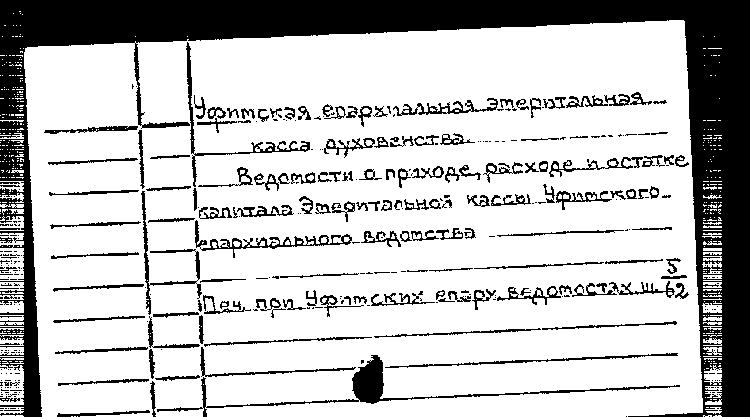 Уфимская епархиальная эмеритальная
касса духовенства.
Ведомости о приходе, расходе и остатке
капитала Эмеритальной кассы Уфимского
епархиального ведомства
Печ. при Уфимских епарх. ведомостях ш. 5/62